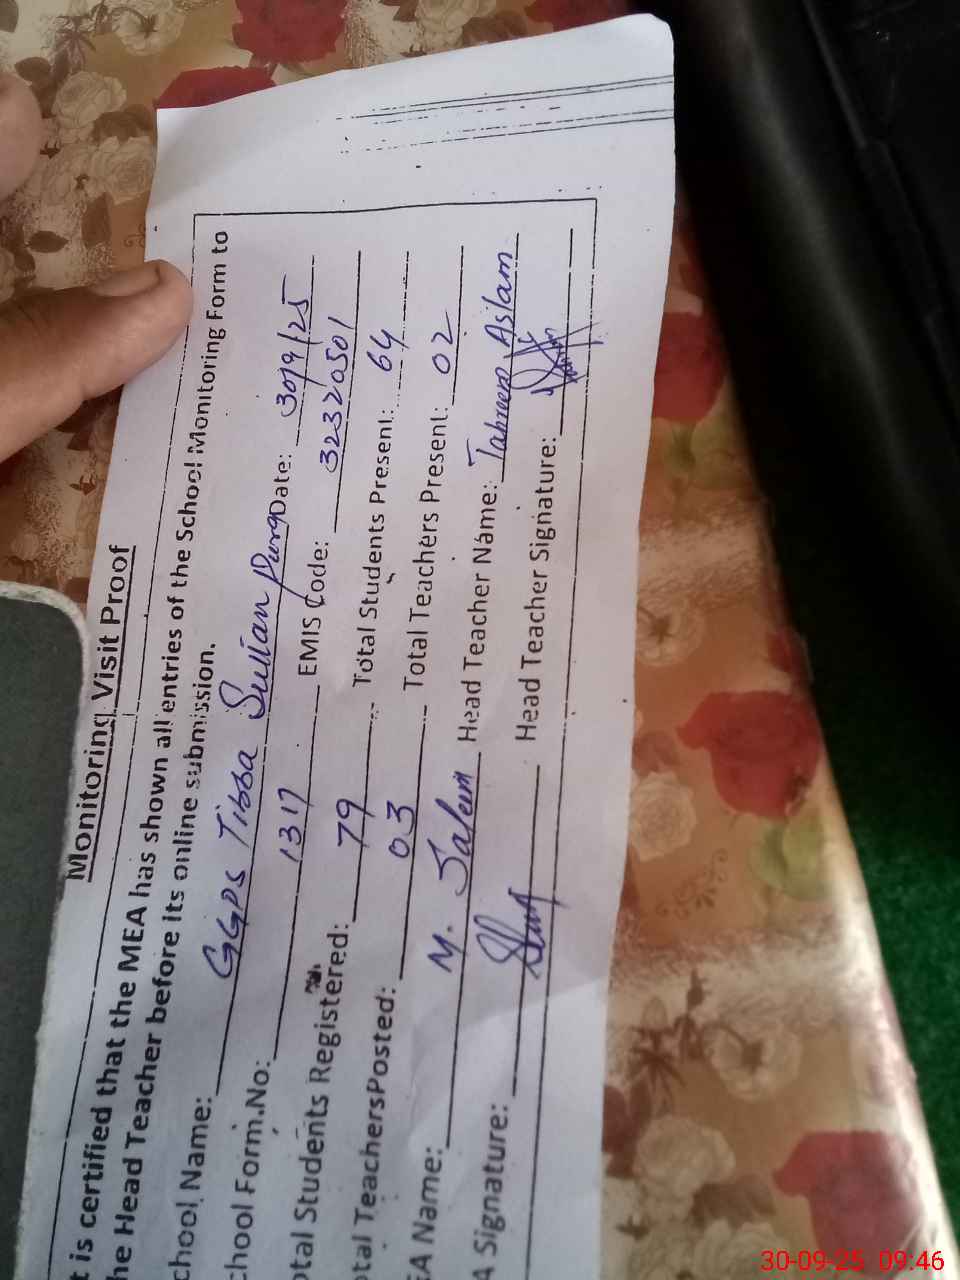 Monitoring Visit Proof
t is certified that the MEA has shown all entries of the School Monitoring Form to
he Head Teacher before its online submission.
chool Name: GGPS Tibba Sultan Pura Date: 30/9/25
chool Form.No: 1317 EMIS Code: 32320501
otal Students Registered: 79 Total Students Present: 64
otal TeachersPosted: 03 Total Teachers Present: 02
EA Name: M. Saleem Head Teacher Name: Aslam
A Signature: Head Teacher Signature:
30-09-25 09:46